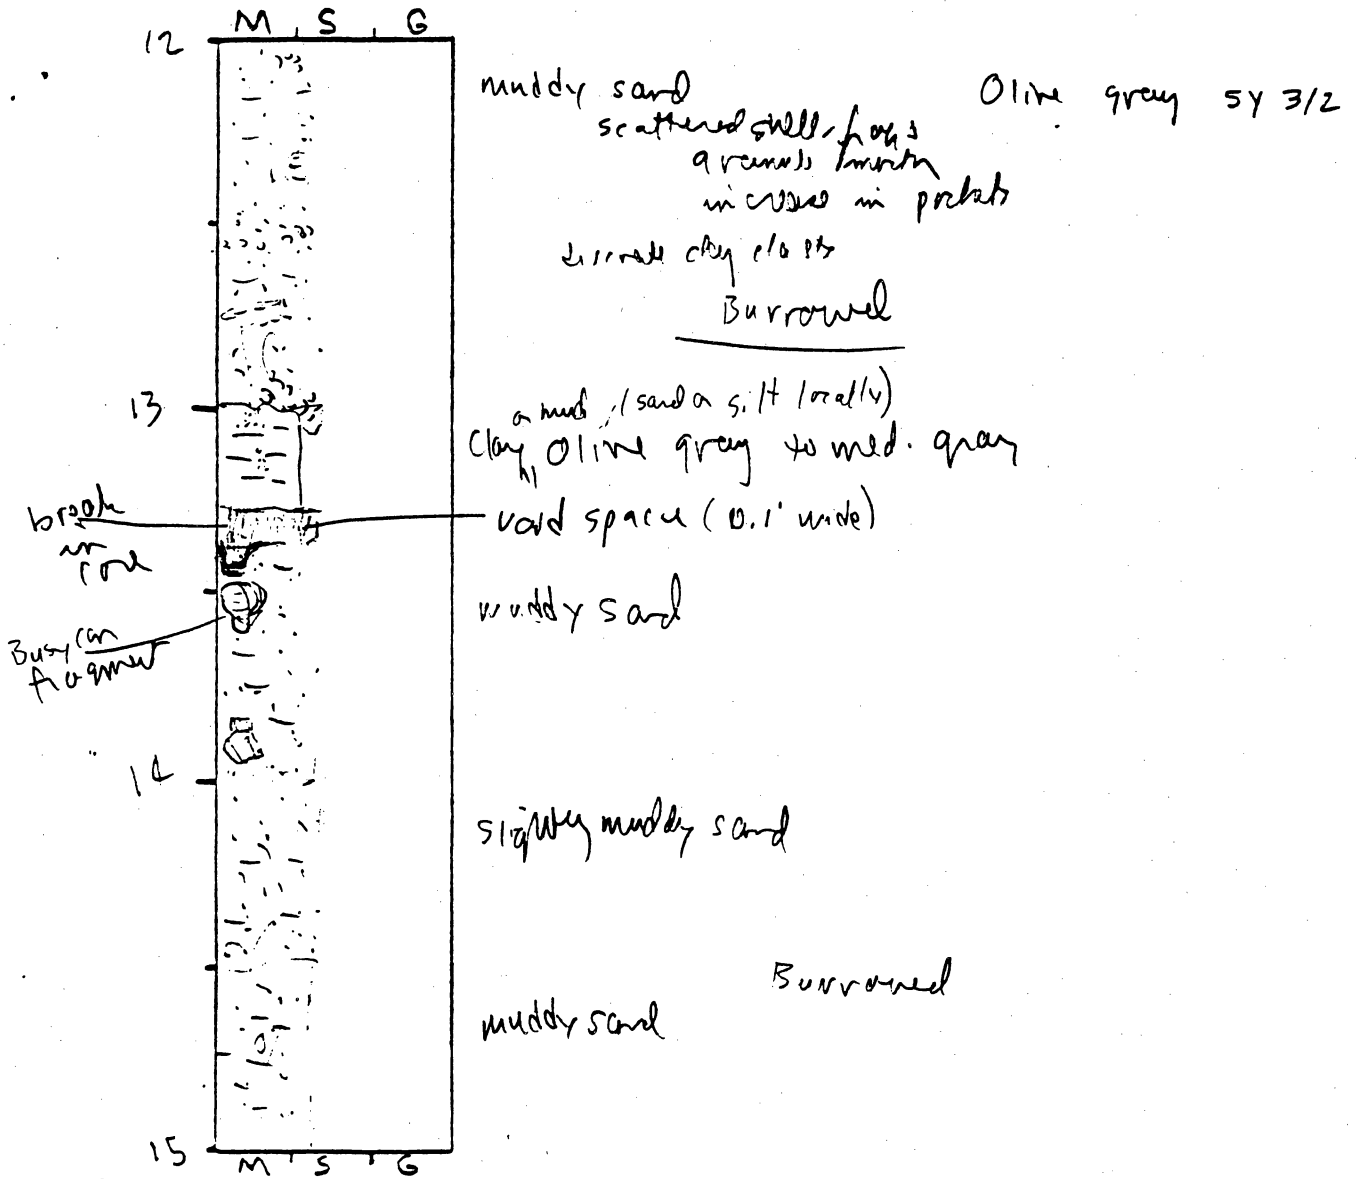 M S G
12
muddy sand
Olive gray 5Y 3/2
scattered shell frags
increase in pockets
discrete clay clasts
Burrowed
13
or mud (sand or silt locally)
Clay, Olive gray to med. gray
break
in
core
void space (0.1' wide)
muddy sand
Busycan
fragment
14
slightly muddy sand
Burrowed
muddy sand
15
M S G